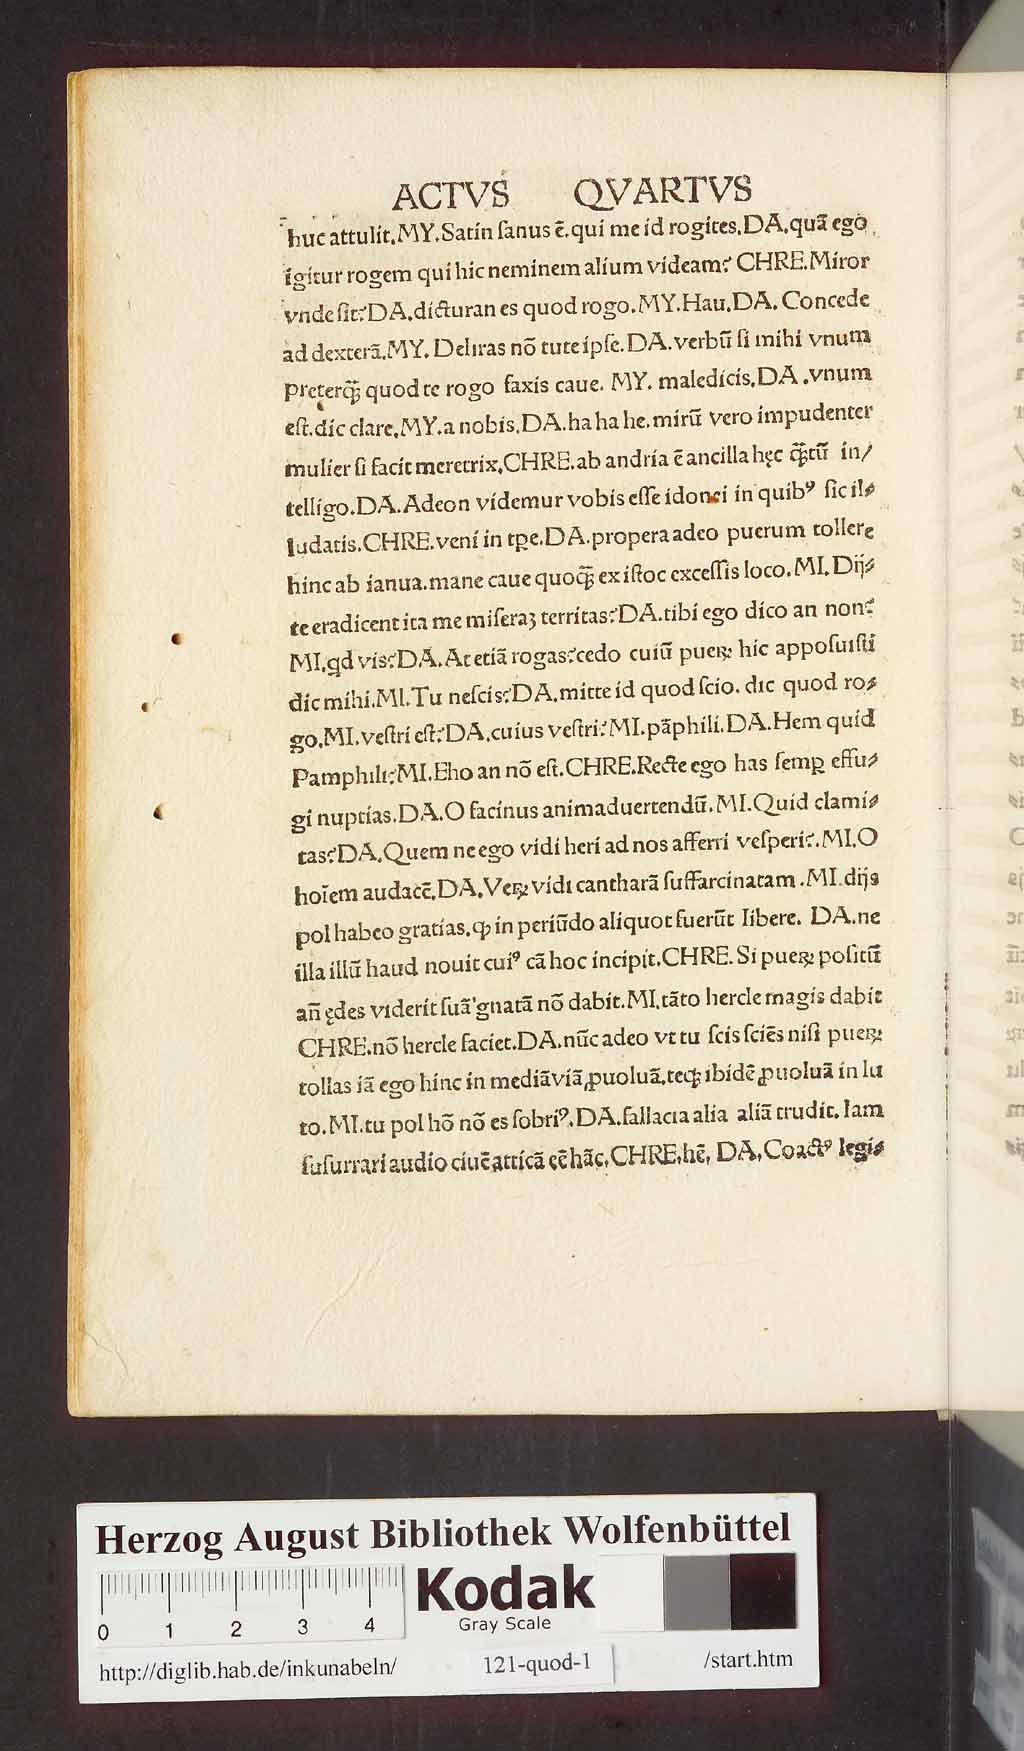 ACTVS QVARTVS
huc attulit.MY.Satin ſanus ē.qui me id rogites.DA.quā ego
igitur rogem qui hic neminem alium videam? CHRE.Miror
vnde ſit?DA.dicturan es quod rogo.MY.Hau.DA.Concede
ad dexterā.MY.Deliras nō tute ipſe.DA.verbū ſi mihi vnum
preterꝙ̃ quod te rogo faxis caue. MY. maledicis.DA.vnum
eſt.dic clare.MY.a nobis.DA.ha ha he.mirū vero impudenter
mulier ſi facit meretrix.CHRE.ab andria ē ancilla hęc ꝙ̃tū in/
telligo.DA.Adeon videmur vobis eſſe idonei in quibꝰ ſic il⸗
ludatis.CHRE.veni in tꝑe.DA.propera adeo puerum tollere
hinc ab ianua.mane caue quoꝙ̃ ex iſtoc exceſſis loco.MI.Dij⸗
te eradicent ita me miſeraꝫ territas?DA.tibi ego dico an non?
MI.qd vis?DA.At etiā rogas?cedo cuiū pueꝝ hic appoſuiſti
dic mihi.MI.Tu neſcis?DA.mitte id quod ſcio. dic quod ro⸗
go.MI.veſtri eſt?DA.cuius veſtri?MI.pāphili.DA.Hem quid
Pamphili?MI.Eho an nō eſt.CHRE.Recte ego has ſemꝑ effu⸗
gi nuptias.DA.O facinus animaduertendū.MI.Quid clami⸗
tas?DA.Quem ne ego vidi heri ad nos afferri veſperi?.MI.O
hoīem audacē.DA.Veꝝ vidi cantharā ſuffarcinatam.MI.dijs
pol habeo gratias.ꝙ in periūdo aliquot fuerūt libere. DA.ne
illa illū haud nouit cuiꝰ cā hoc incipit.CHRE.Si pueꝝ poſitū
an̄ ędes viderit ſuā gnatā nō dabit.MI.tāto hercle magis dabit
CHRE.nō hercle faciet.DA.nūc adeo vt tu ſcis ſciēs niſi pueꝝ
tollas iā ego hinc in mediā viā ꝓuoluā.teqꝫ ibidē ꝓuoluā in lu
to.MI.tu pol hō nō es ſobriꝰ.DA.fallacia alia aliā trudit. Iam
ſuſurrari audio ciuē atticā eē hāc.CHRE.hē. DA.Coactꝰ legi⸗
Herzog August Bibliothek Wolfenbüttel
0 1 2 3 4
Kodak
Gray Scale
http://diglib.hab.de/inkunabeln/ 121-quod-1 /start.htm